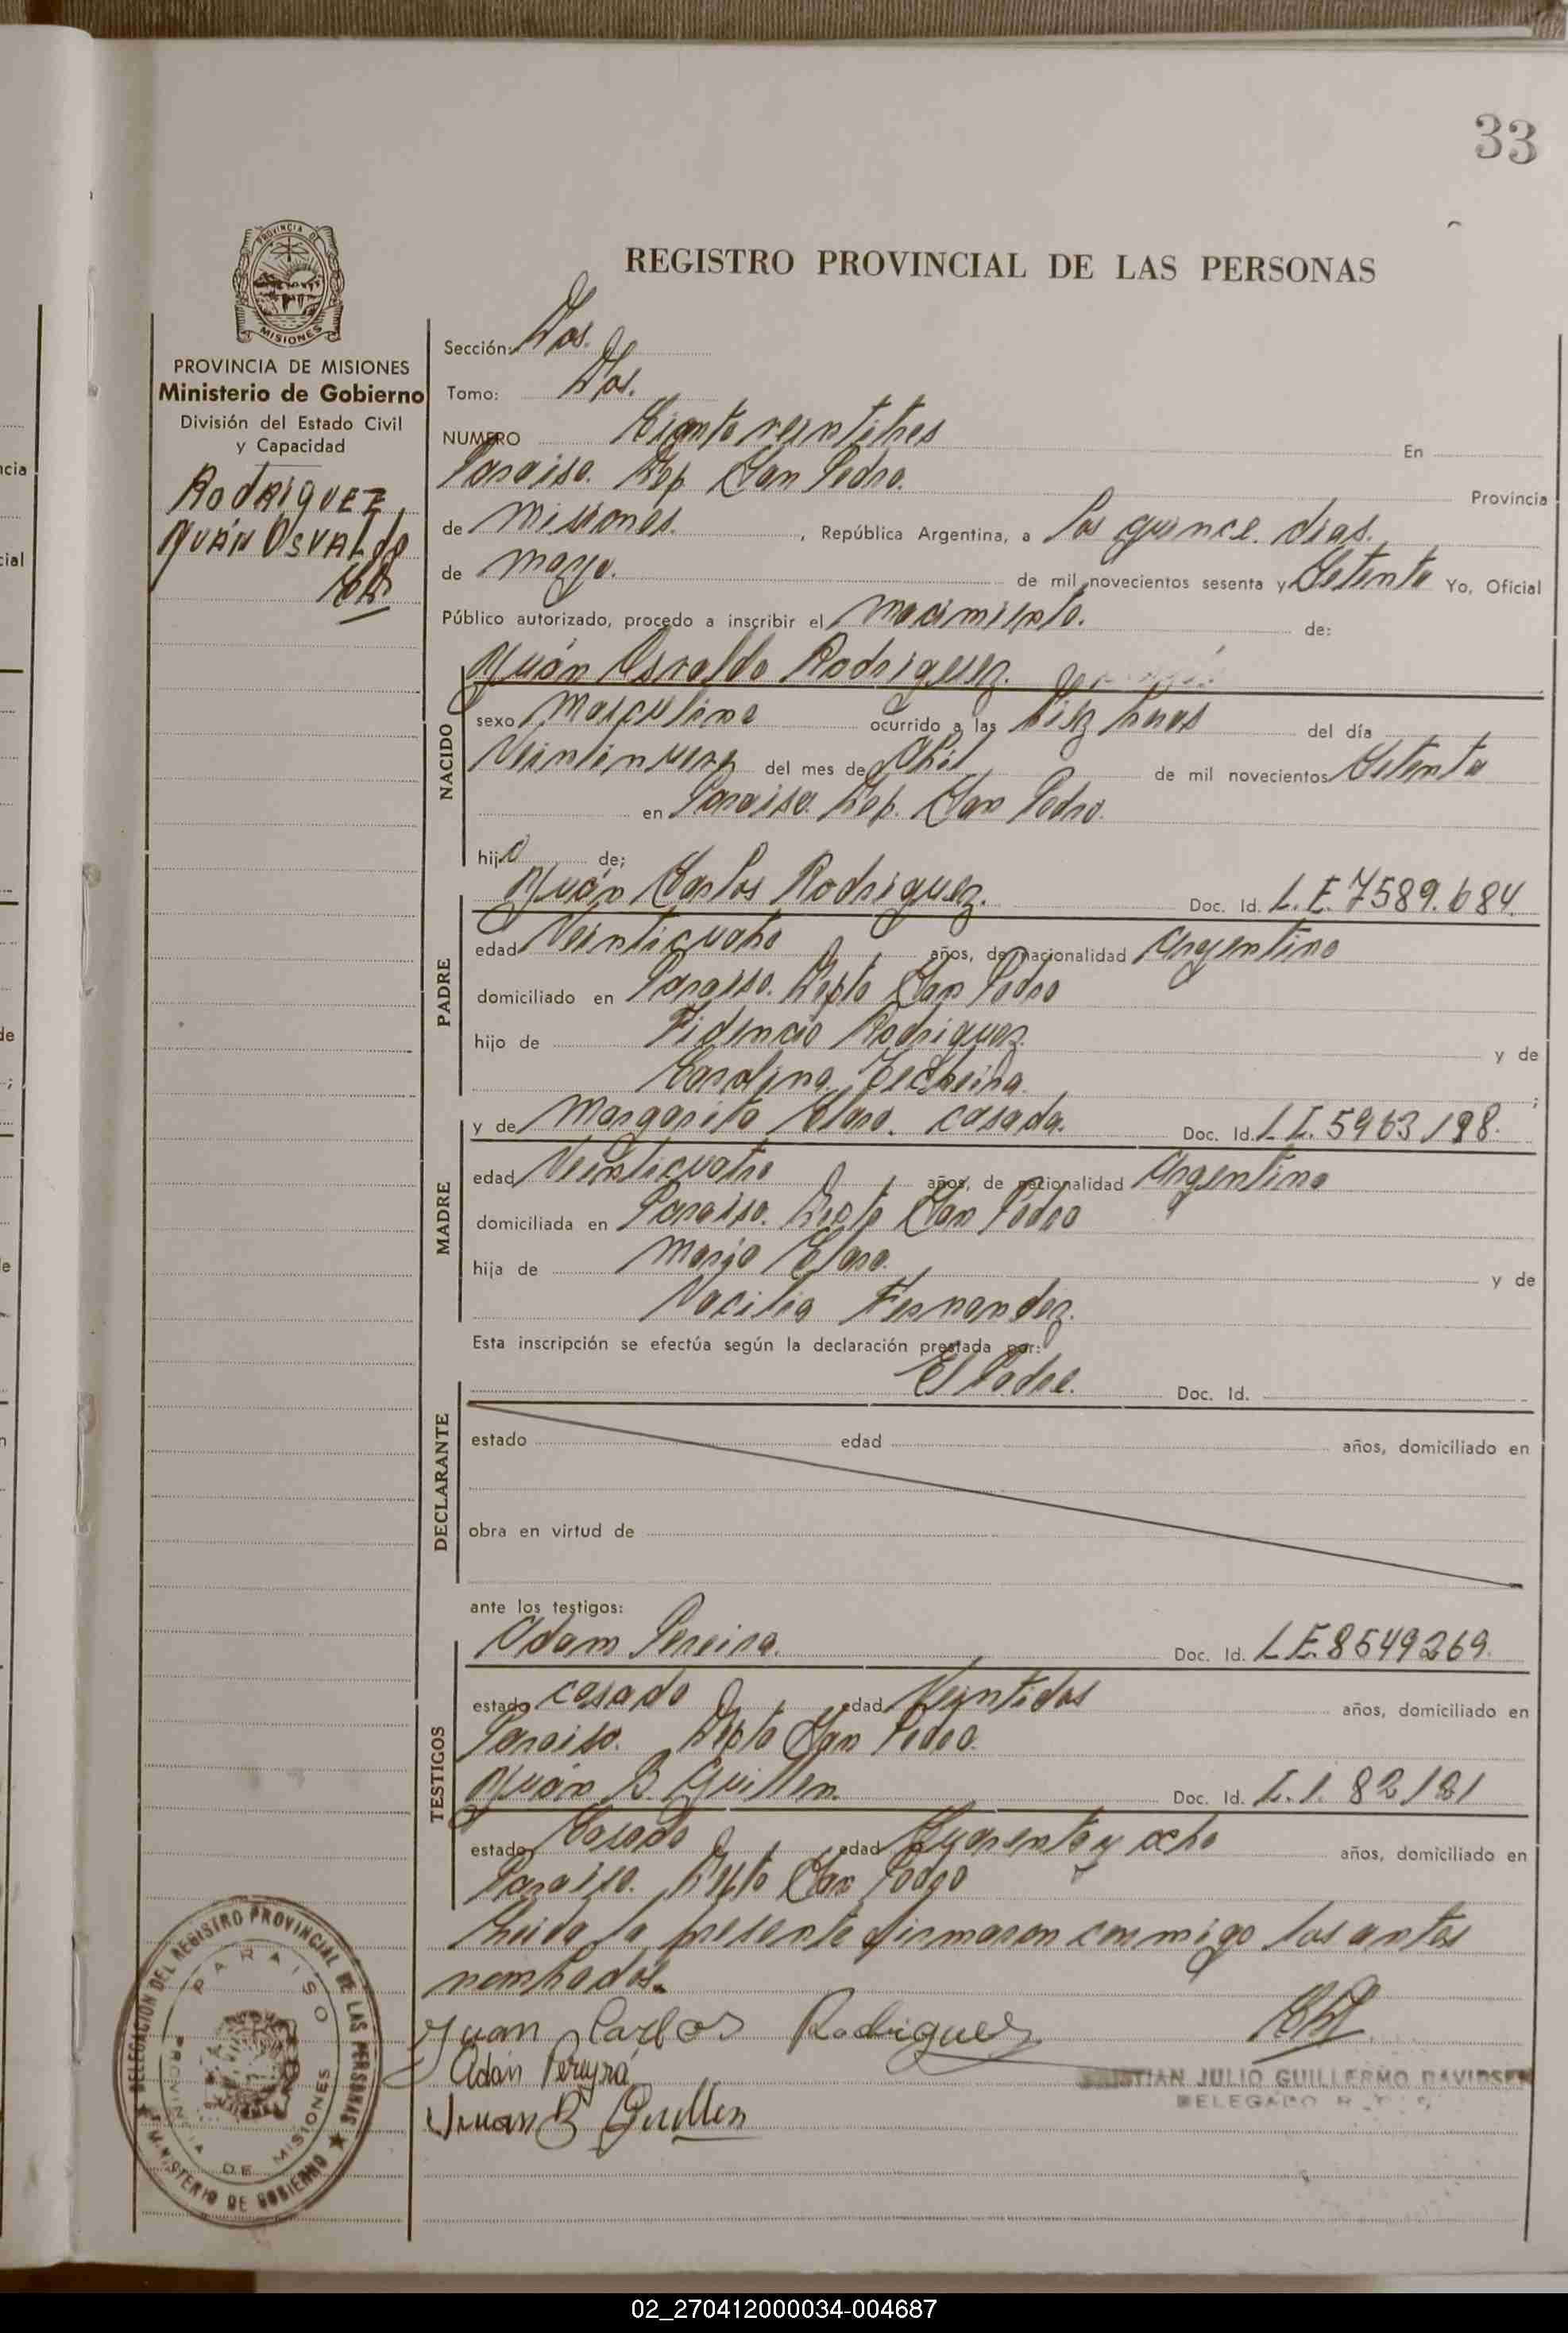 33
PROVINCIA DE
MISIONES
PROVINCIA DE MISIONES
Ministerio de Gobierno
División del Estado Civil
y Capacidad
RODRIGUEZ,
JUÁN OSVALDO
REGISTRO PROVINCIAL DE LAS PERSONAS
Sección: Dos.
Tomo: Dos.
NUMERO Cientoveintitres En
Paraiso. Dep. San Pedro. Provincia
de Misiones. , República Argentina, a los quince dias.
de mayo. de mil novecientos sesenta y Setenta Yo, Oficial
Público autorizado, procedo a inscribir el nacimiento. de:
Juán Osvaldo Rodriguez.
NACIDO
sexo masculino ocurrido a las diez horas del día
Veintinueve del mes de Abril de mil novecientos Setenta
en Paraiso. Dep. San Pedro.
hijo de;
PADRE
Juán Carlos Rodriguez. Doc. Id. L.E. 7589.684.
edad Veinticuatro años, de nacionalidad Argentino
domiciliado en Paraiso. Depto San Pedro
hijo de Fidencio Rodriguez y de
Carolina Techeira. ;
MADRE
y de Margarita Claro. casada. Doc. Id. 5963198.
edad Veinticuatro años, de nacionalidad Argentina
domiciliada en Paraiso. Depto San Pedro
hija de Mario Claro. y de
Fernandez.
Esta inscripción se efectúa según la declaración prestada por:
El Padre. Doc. Id.
DECLARANTE
estado edad años, domiciliado en
obra en virtud de
ante los testigos:
TESTIGOS
Adam Pereira. Doc. Id. L.E. 8549269.
estado casado edad Veintidos años, domiciliado en
Paraiso. Depto San Pedro.
Juán B. Guillen. Doc. Id. 82121
estado Casado edad Cuarenta y ocho años, domiciliado en
Paraiso. Depto San Pedro
Leida la presente firmaron conmigo los antes
nombrados.
Juan Carlos Rodriguez
Adán Pereyra
Juan B Guillen
CRISTIAN JULIO GUILLERMO DAVIDSEN
DELEGADO
DELEGACION DEL REGISTRO PROVINCIAL DE LAS PERSONAS
MINISTERIO DE GOBIERNO
PARAISO
PROVINCIA DE MISIONES
02_270412000034-004687